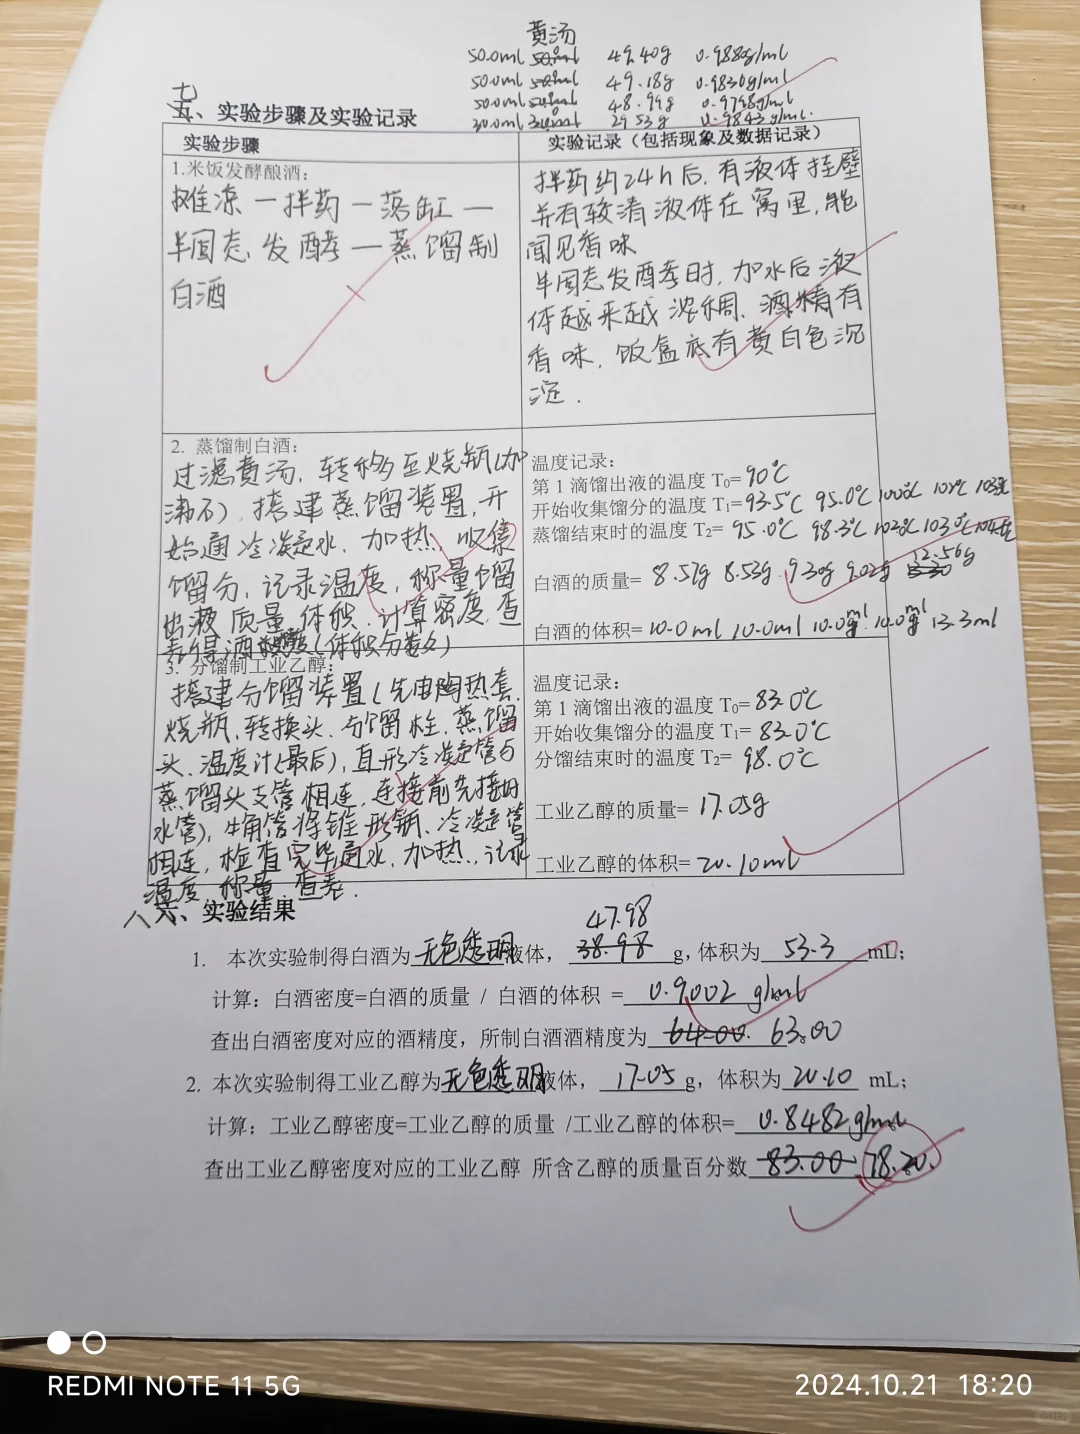 黄汤
50.0ml 50.0ml 49.40g 0.9880g/ml
50.0ml 50.0ml 49.18g 0.9836g/ml
50.0ml 50.0ml 48.99g 0.9798g/ml
30.0ml 30.0ml 29.53g 0.9843g/ml.
七
五、实验步骤及实验记录
实验步骤
实验记录（包括现象及数据记录）
1.米饭发酵酿酒：
摊凉一拌药一落缸一
半固态发酵一蒸馏制
白酒
拌药约24h后,有液体挂壁
并有较清液体在窝里,能
闻见香味
半固态发酵时,加水后液
体越来越浓稠、酒精有
香味,饭盒底有黄白色沉
淀.
2. 蒸馏制白酒：
过滤黄汤,转移至烧瓶(加
沸石),搭建蒸馏装置,开
始通冷凝水、加热,收集
馏分,记录温度,称量馏
出液质量、体积,计算密度,查
表得酒精度(体积分数)
温度记录：
第1滴馏出液的温度 T₀= 90℃
开始收集馏分的温度 T₁= 93.5℃ 95.0℃ 100℃ 102℃ 103℃
蒸馏结束时的温度 T₂= 95.0℃ 98.3℃ 102℃ 103℃ 104℃
12.56g
白酒的质量= 8.57g 8.53g 9.30g 9.02g
白酒的体积= 10.0ml 10.0ml 10.0ml 10.0ml 13.3ml
3. 分馏制工业乙醇：
搭建分馏装置(先电陶热套、
烧瓶、转换头、分馏柱、蒸馏
头、温度计(最后),直形冷凝管与
蒸馏头支管相连,连接前先接好
水管),牛角管将锥形瓶、冷凝管
相连,检查完毕通水、加热,记录
温度、称量、查表.
温度记录：
第1滴馏出液的温度 T₀= 83.0℃
开始收集馏分的温度 T₁= 83.0℃
分馏结束时的温度 T₂= 98.0℃
工业乙醇的质量= 17.05g
工业乙醇的体积= 20.10ml
八
六、实验结果
47.98
1. 本次实验制得白酒为无色透明液体， 38.98 g, 体积为 53.3 mL；
计算：白酒密度=白酒的质量 / 白酒的体积 = 0.9002 g/ml
查出白酒密度对应的酒精度，所制白酒酒精度为 64.00. 63.00
2. 本次实验制得工业乙醇为无色透明液体， 17.05 g，体积为 20.10 mL；
计算：工业乙醇密度=工业乙醇的质量 /工业乙醇的体积= 0.8482g/ml
查出工业乙醇密度对应的工业乙醇 所含乙醇的质量百分数 83.00 78.20.
REDMI NOTE 11 5G
2024.10.21 18:20